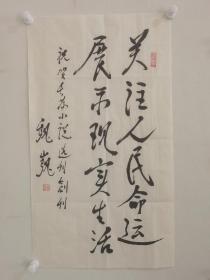 关注人民命运
展示现实生活
祝贺长江小说选刊创刊
魏巍